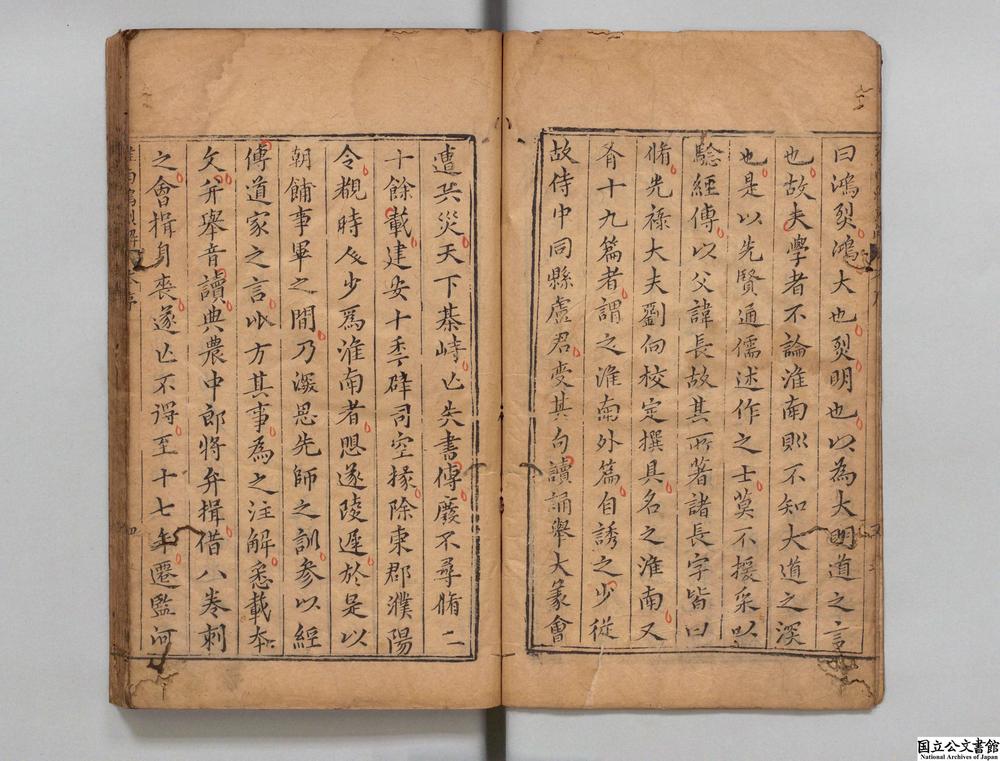 曰鴻烈鴻大也烈明也以為大明道之言
也故夫學者不論淮南則不知大道之深
也是以先賢通儒述作之士莫不援采以
驗經傳以父諱長故其所著諸長字皆曰
脩先祿大夫劉向校定撰具名之淮南又
有十九篇者謂之淮南外篇自誘之少從
故侍中同縣盧君受其句讀誦舉大義會
遭兵災天下棊峙亡失書傳廢不尋脩二
十餘載建安十年辟司空掾除東郡濮陽
令覩時人少為淮南者懼遂陵遲於是以
朝餔事畢之間乃深思先師之訓參以經
傳道家之言比方其事為之注解悉載本
文并舉音讀典農中郎將弁揖借八卷刺
之會揖身喪遂亡不得至十七年遷監河
国立公文書館
National Archives of Japan